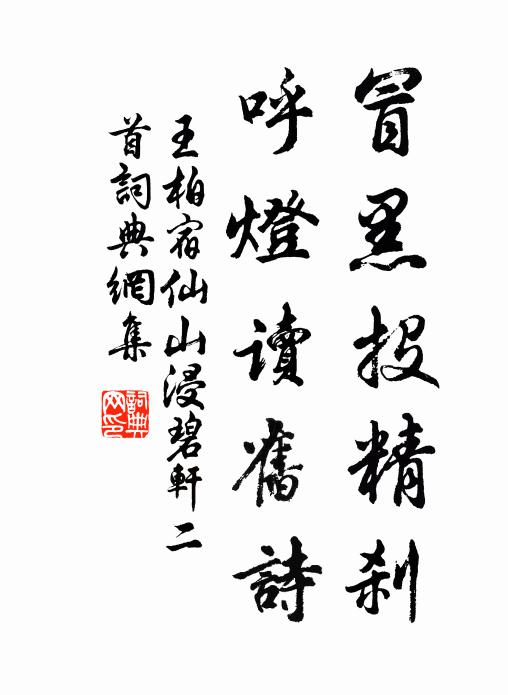 冒黑投精刹
呼燈讀舊詩
王柏宿仙山浸碧軒二
首詞典網集
詞典网印